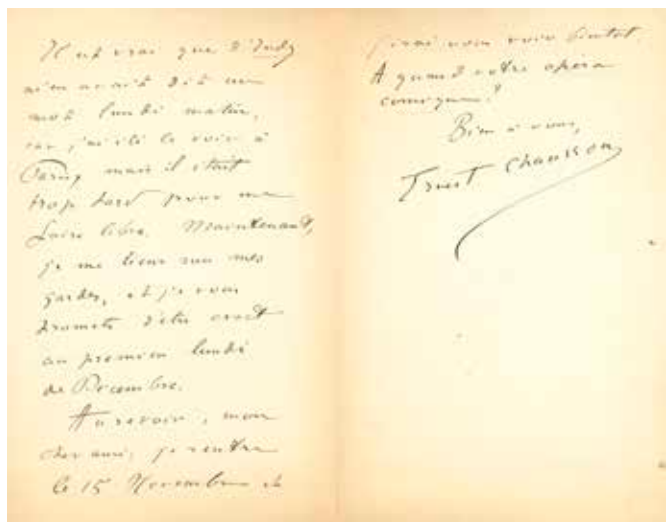 Il est vrai que d'Indy
m'en avait dit un
mot lundi matin,
car j'ai été le voir à
mais il était
trop tard pour me
faire libre. Maintenant,
je me tiens sur mes
gardes, et je vous
promets d'être exact
au premier lundi
de Décembre.
Au revoir, mon
cher ami, je rentre
le 15 Novembre et
j'irai vous voir bientôt.
A quand votre opéra
comique?
Bien à vous,
Ernest Chausson